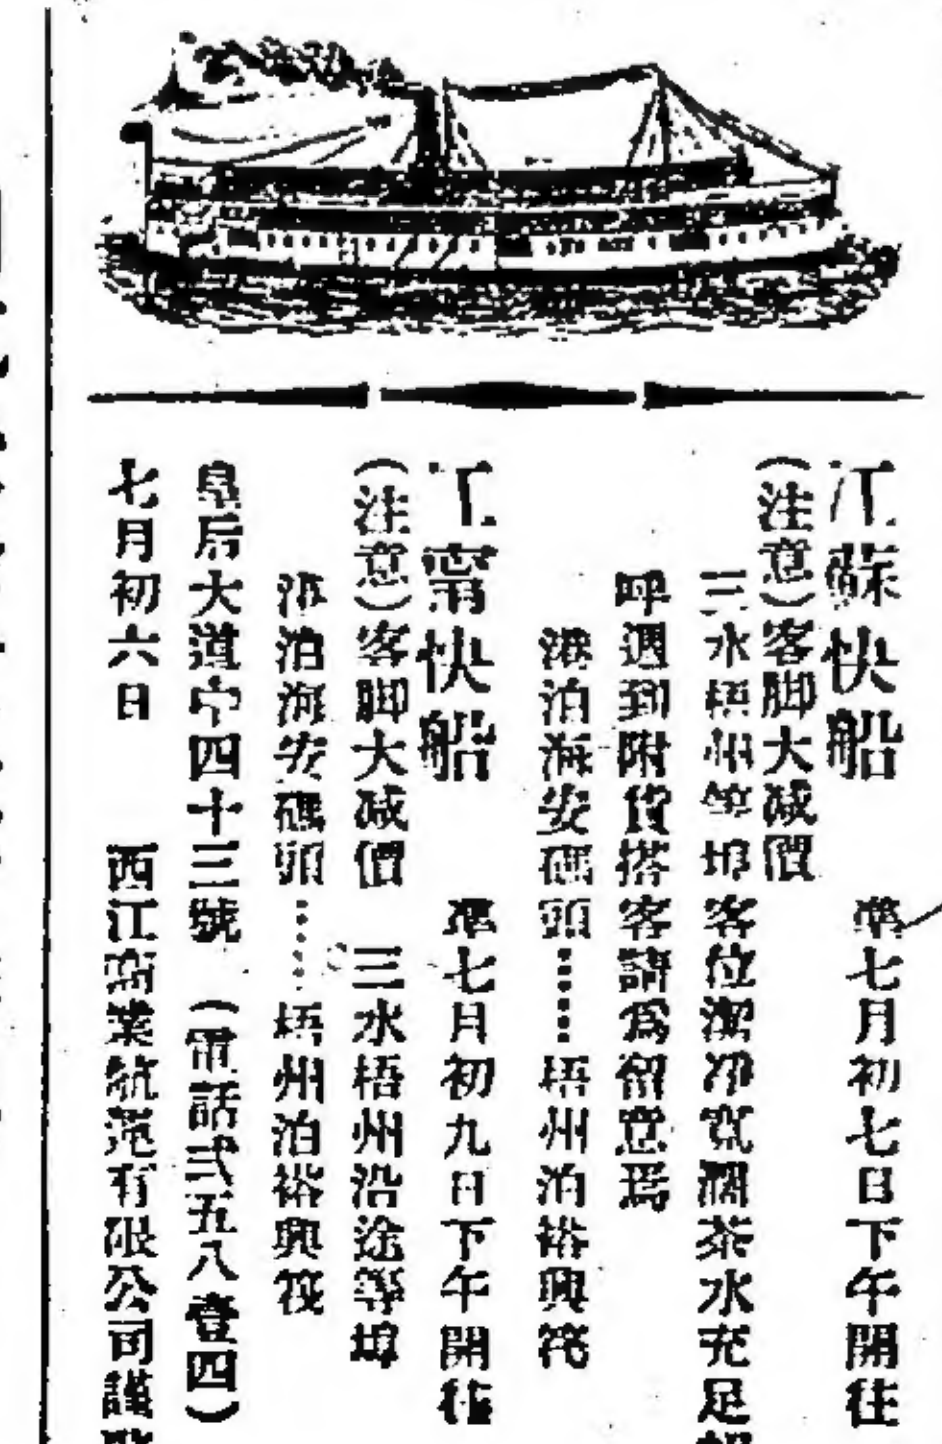 江蘇快船　準七月初七日下午開往
(注意)客脚大減價
三水梧州等埠客位潔凈寬濶茶水充足招
呼週到附貨搭客請爲留意焉
港泊海安碼頭……梧州泊裕興筏
江甯快船　準七月初九日下午開往
(注意)客脚大減價　三水梧州沿途等埠
港泊海安碼頭……梧州泊裕興筏
皇后大道中四十三號　(電話弍五八壹四)
七月初六日　西江商業航運有限公司謹